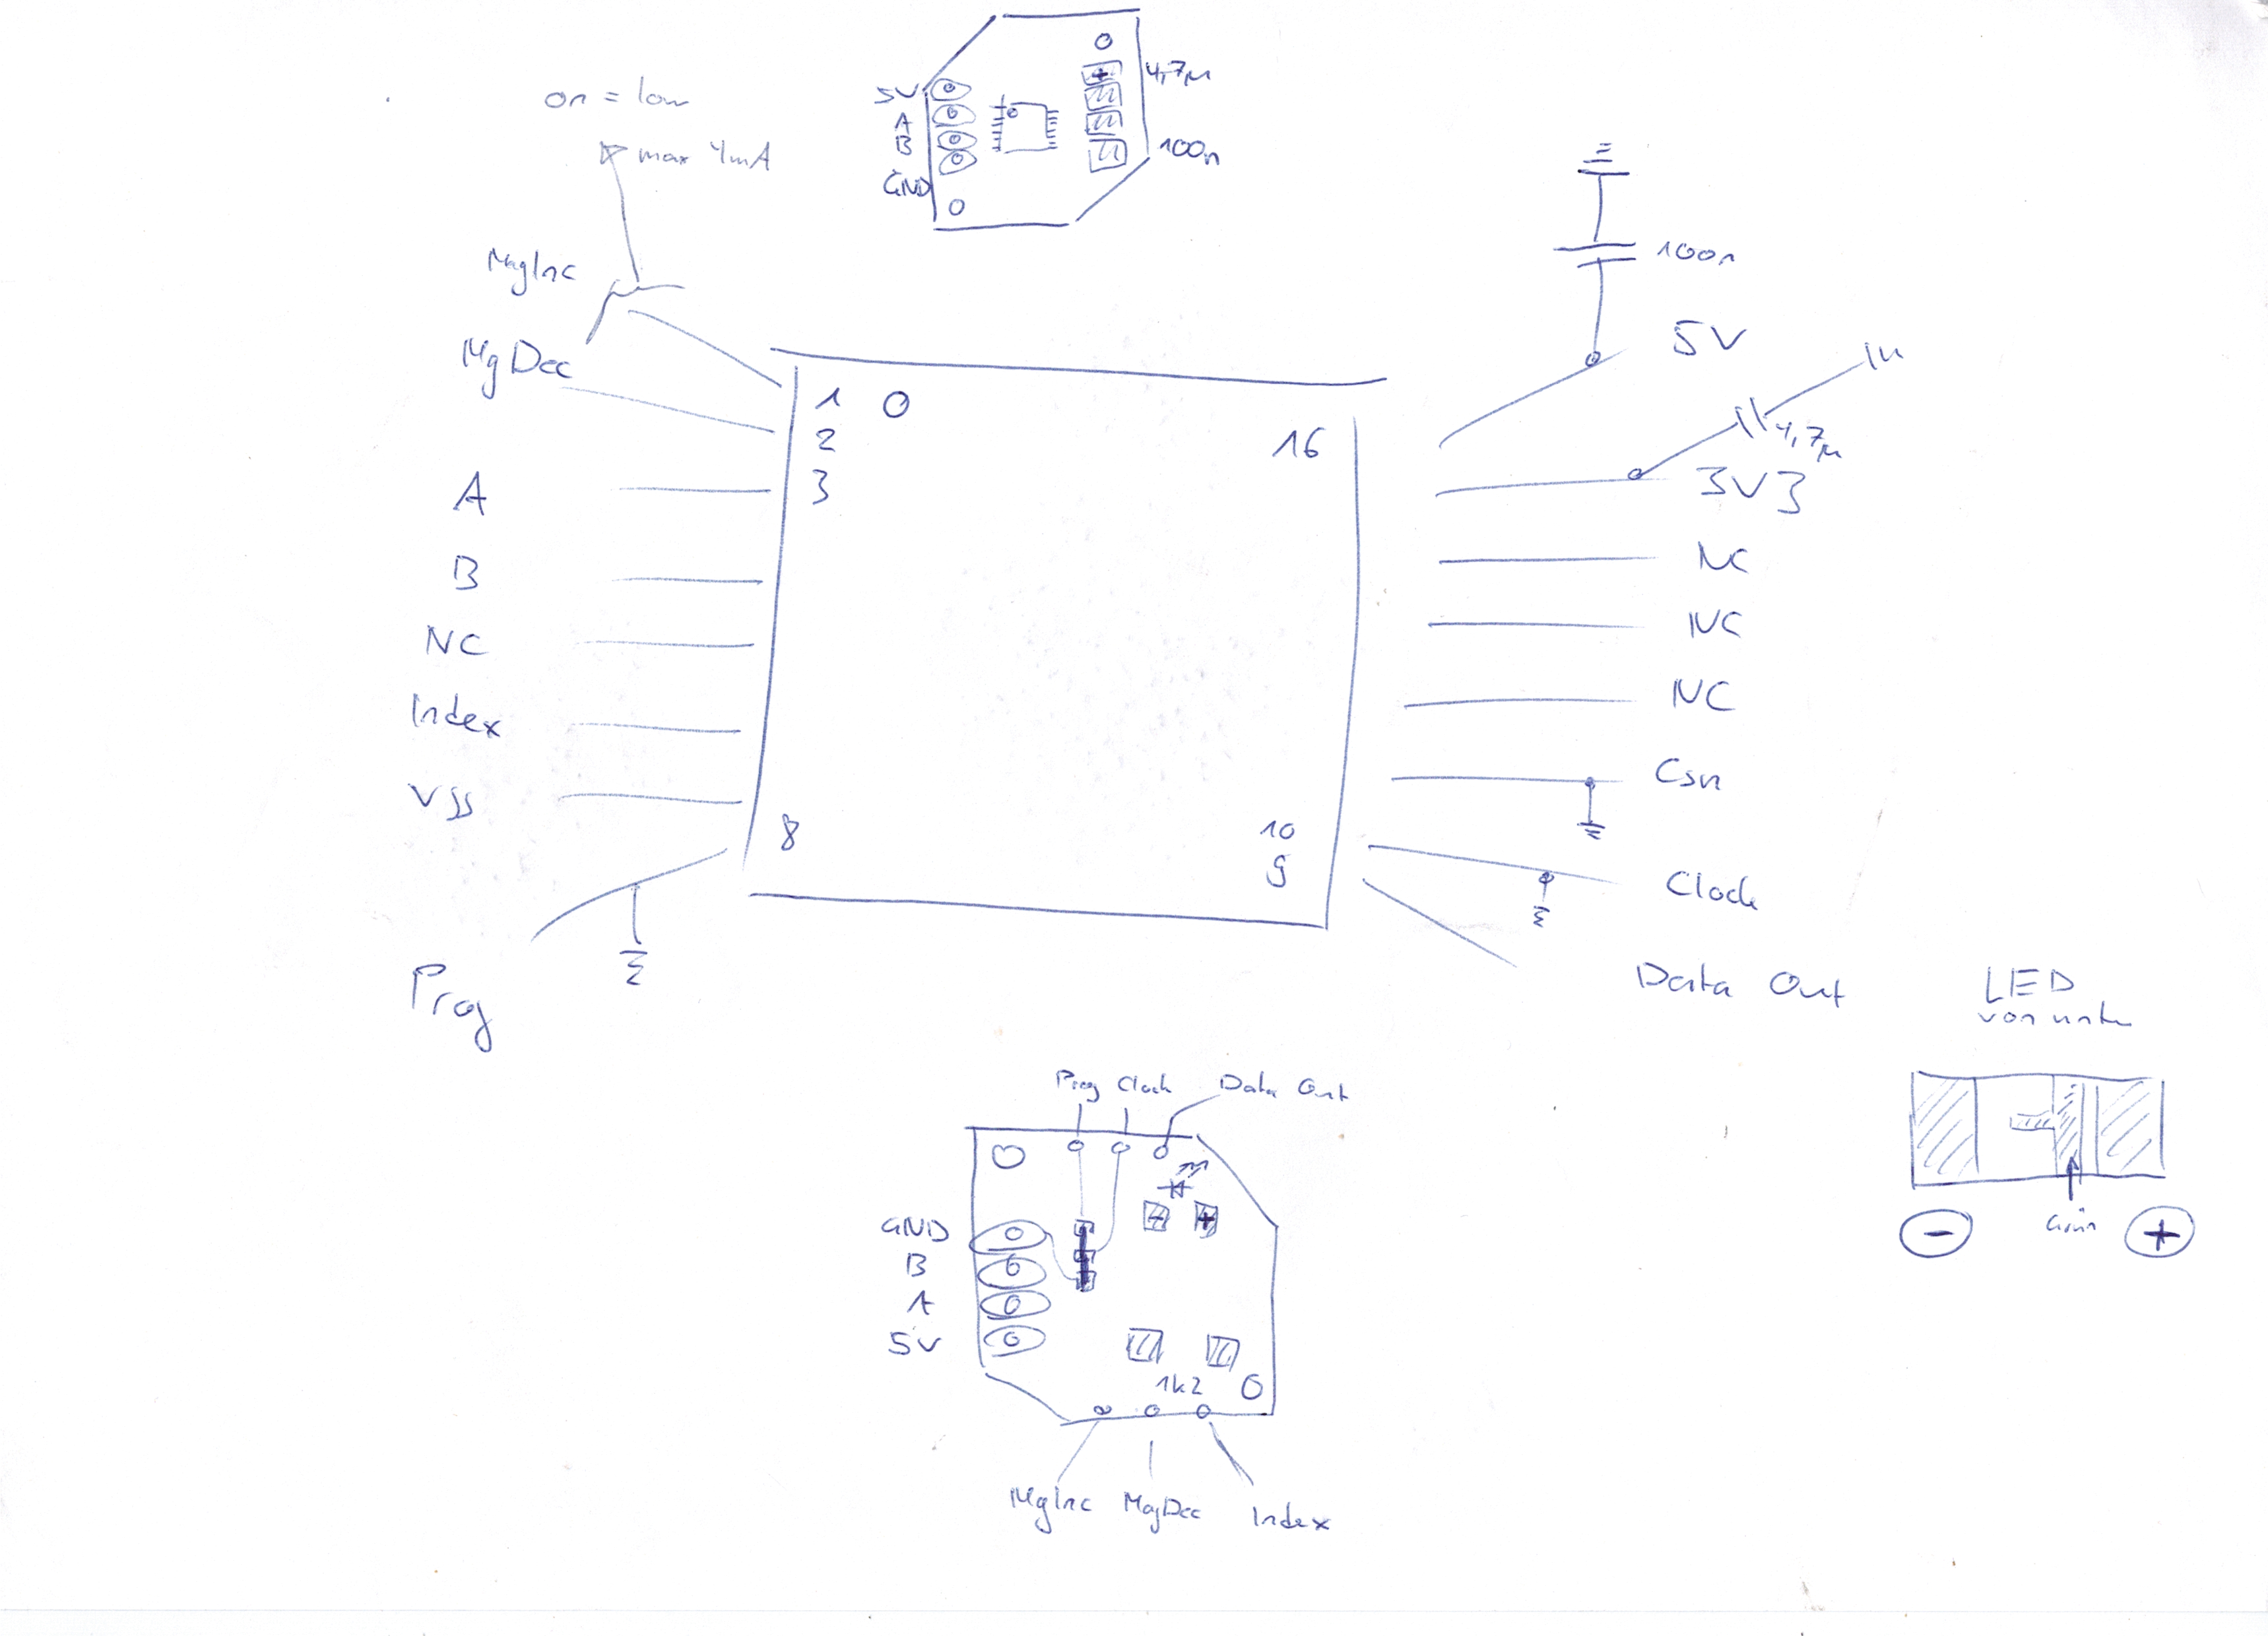 5V
A
B
GND
4,7µ
100n
on = low
max 4mA
MagInc
MgDec
A
B
NC
Index
VSS
Prog
1
2
3
8
16
10
9
100n
5V
4,7µ
3V3
NC
NC
NC
Csn
Clock
Data Out
LED
von unten
Grün
-
+
Prog Clock Data Out
GND
B
A
5V
-
+
1k2
MgInc MagDec Index